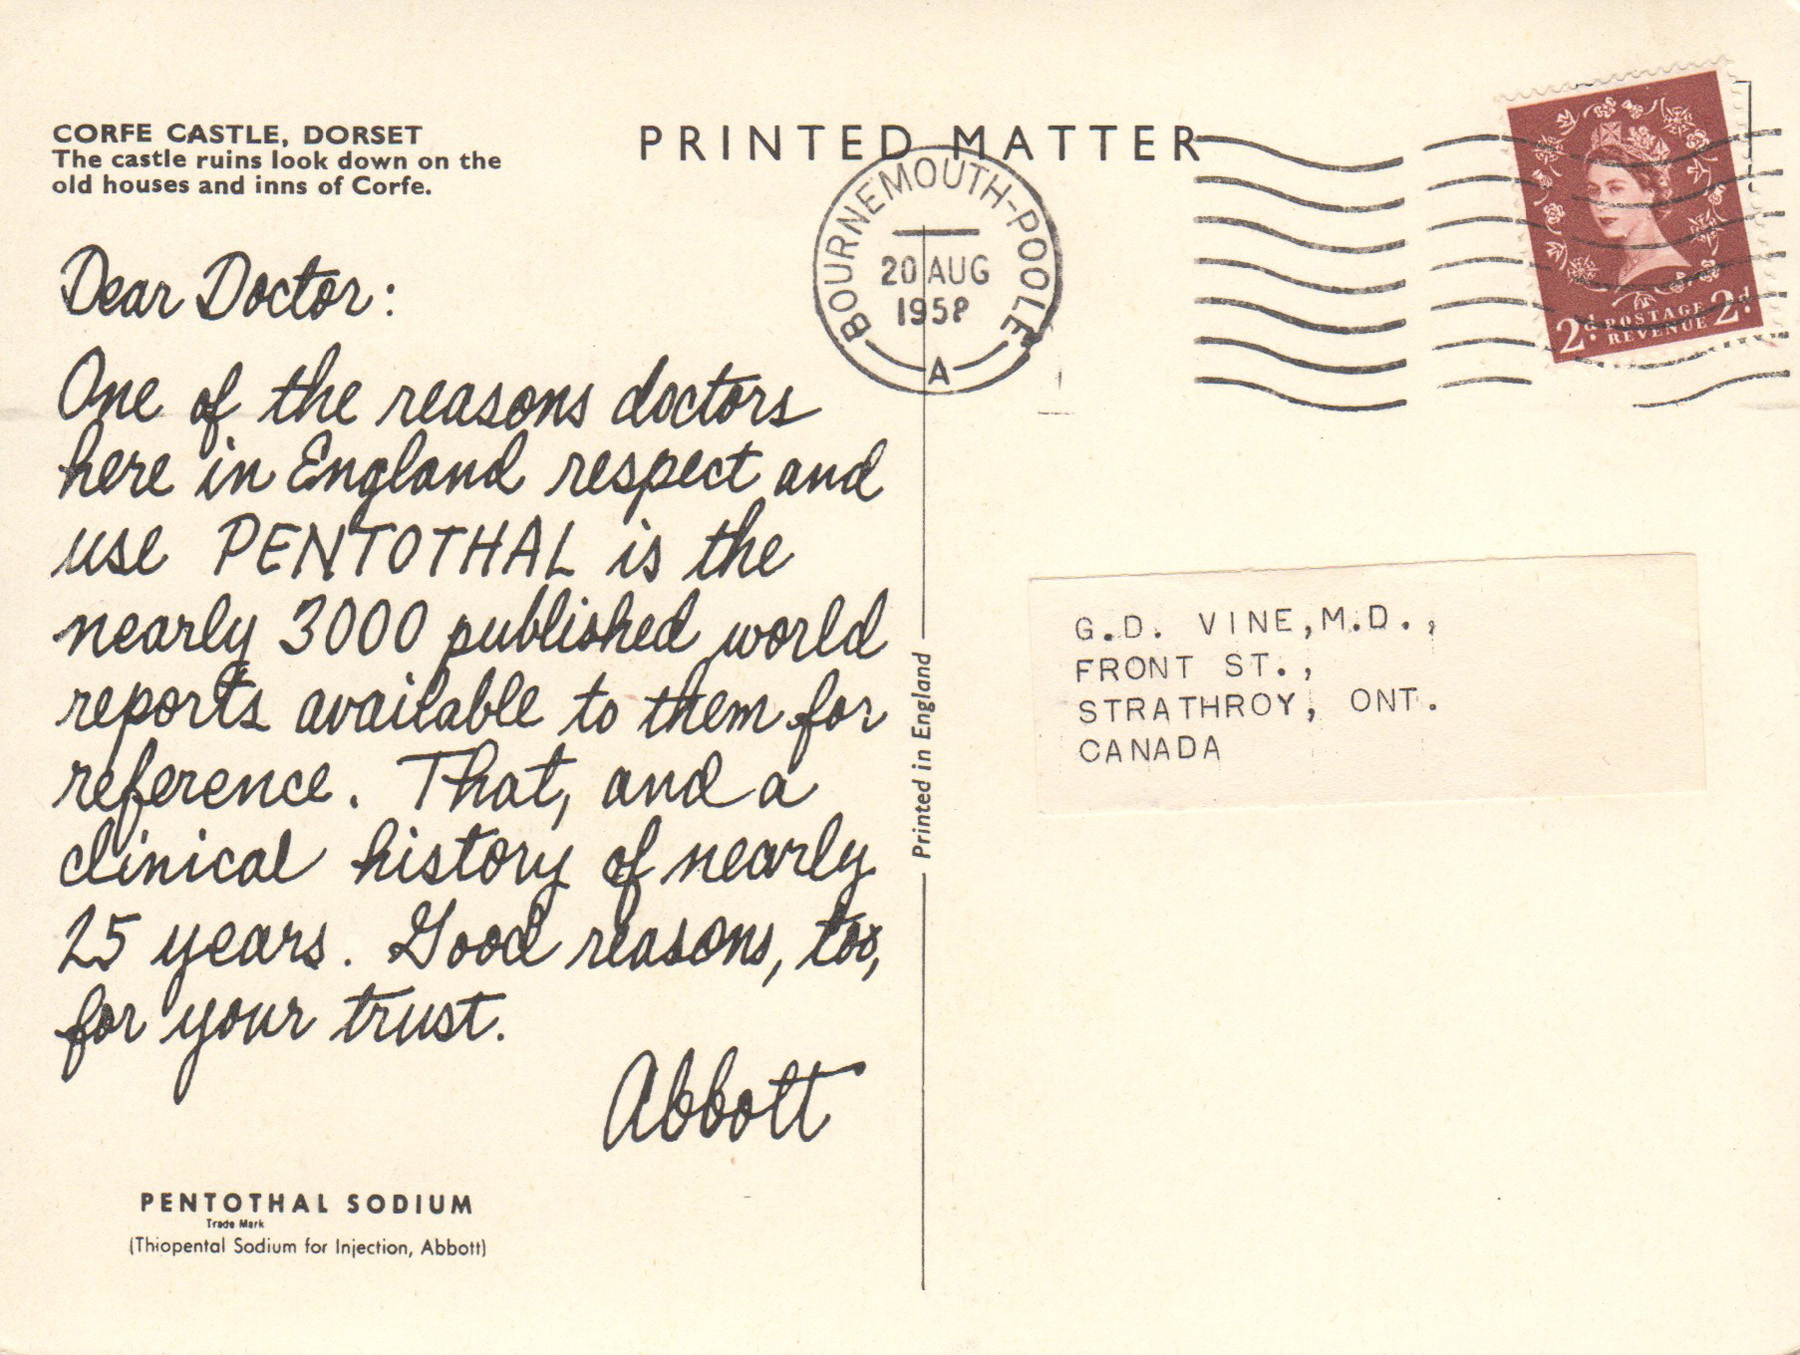 CORFE CASTLE, DORSET
The castle ruins look down on the
old houses and inns of Corfe.
Dear Doctor:
One of the reasons doctors
here in England respect and
use PENTOTHAL is the
nearly 3000 published world
reports available to them for
reference. That, and a
clinical history of nearly
25 years. Good reasons, too,
for your trust.
Abbott
PENTOTHAL SODIUM
Trade Mark
(Thiopental Sodium for Injection, Abbott)
Printed in England
PRINTED MATTER
BOURNEMOUTH-POOLE
20 AUG
1958
A
2d. POSTAGE 2d.
REVENUE
G.D. VINE,M.D.,
FRONT ST.,
STRATHROY, ONT.
CANADA